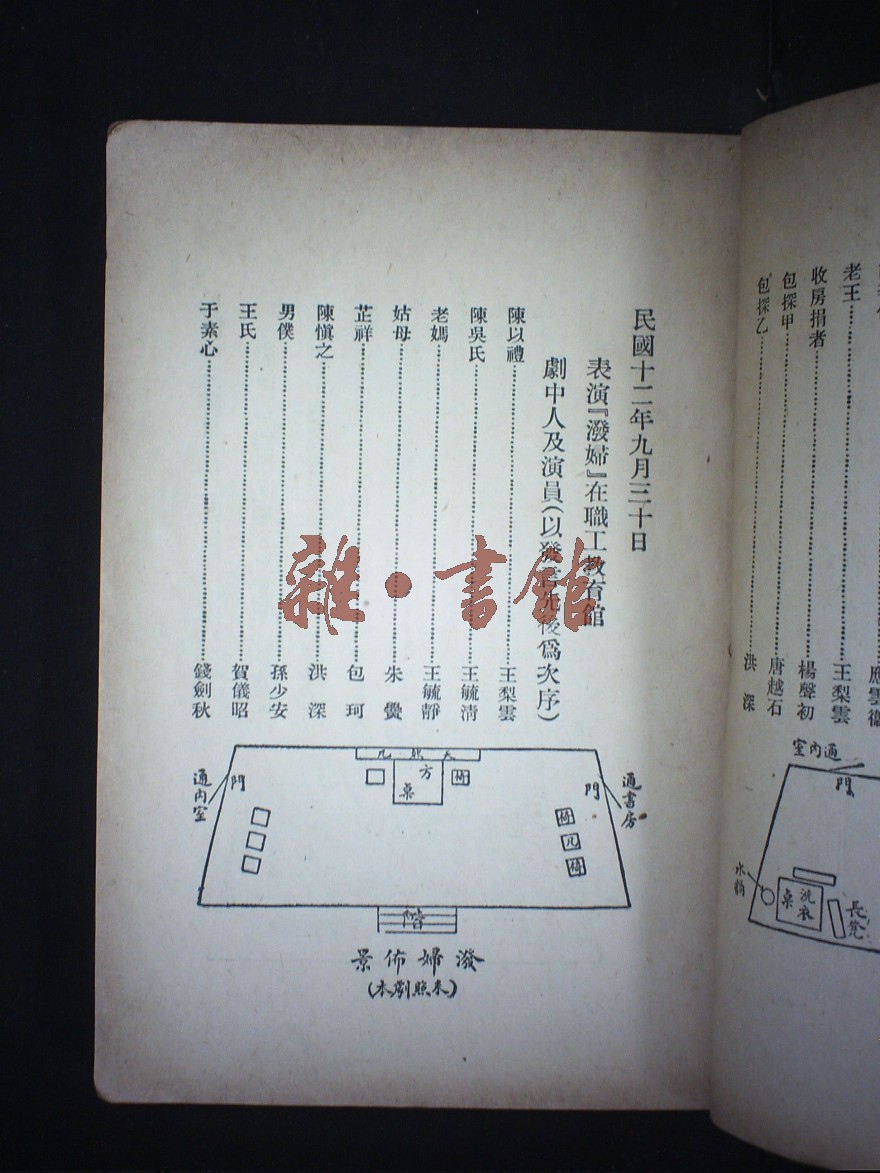 老王……王梨雲
收房捐者……楊聲初
包探甲……唐越石
包探乙……洪深
通內室
門
洗衣桌
長凳
民國十二年九月三十日
表演『潑婦』在職工教育館
劇中人及演員(以發言先後爲次序)
陳以禮……王梨雲
陳吳氏……王毓清
老媽……王毓靜
姑母……朱
芷祥……包珂
陳愼之……洪深
男僕……孫少安
王氏……賀儀昭
于素心……錢劍秋
天然几
方桌
椅
通書房
門
椅
几
椅
門
通內室
階
潑婦佈景
(未照劇本)
雜·書館